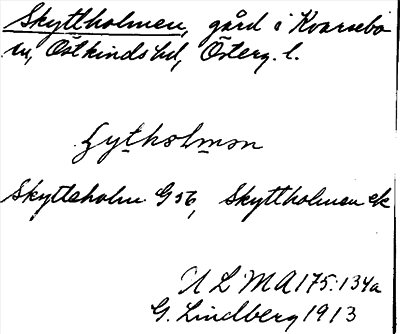 Skyttholmen, gård i Kvarsebo
sn, Östkinds hd, Österg. l.
ʃytholmən
Skytteholm G 56, Skyttholmen ek
ULMA 175:134a
G. Lindberg 1913